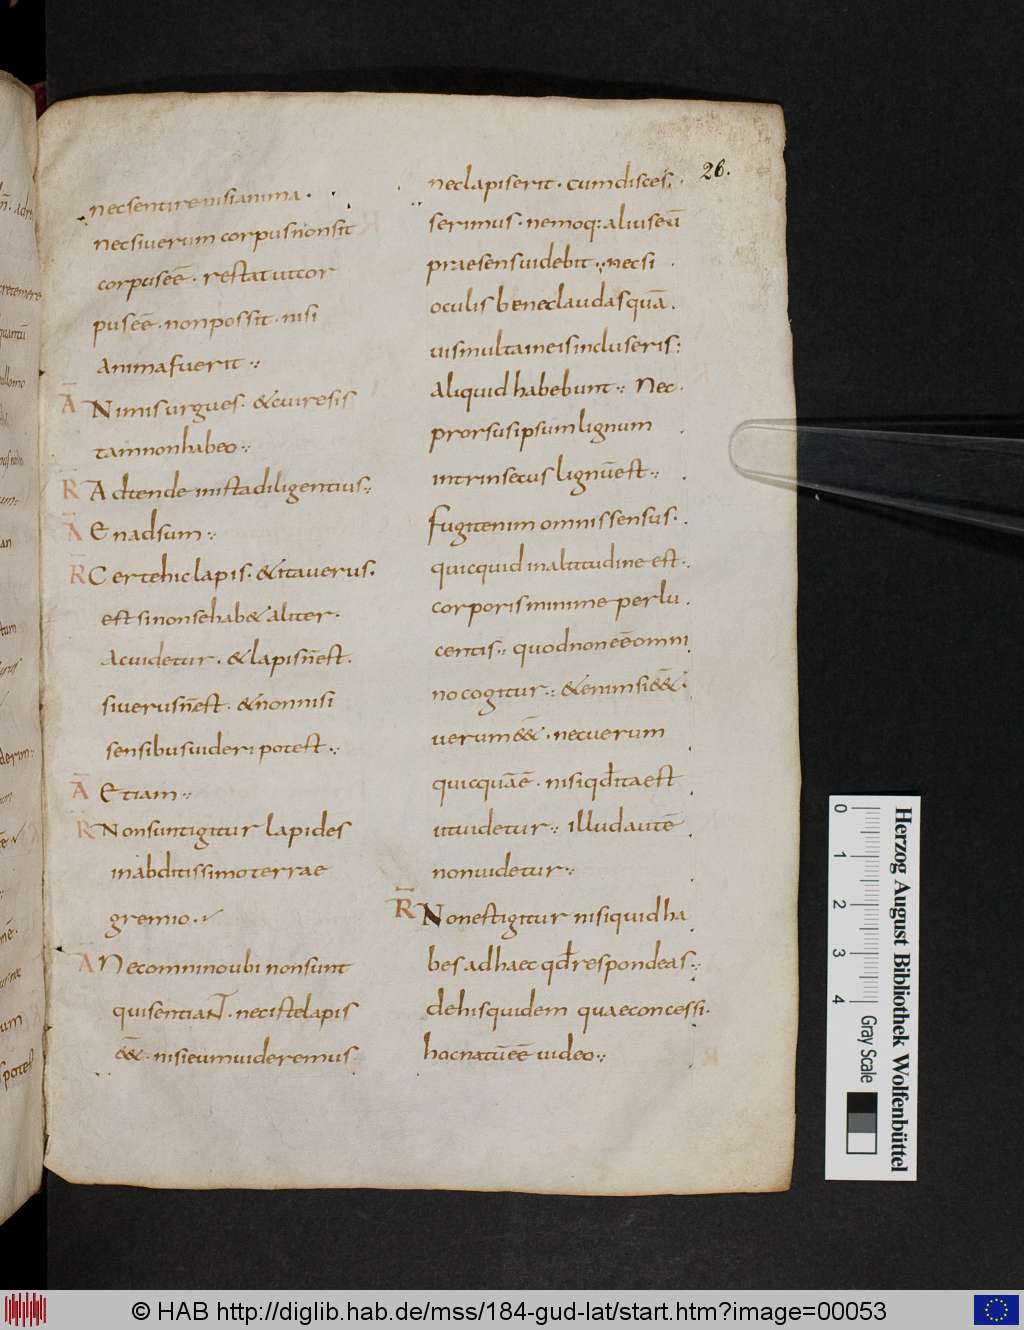 nec sentire nisi anima ·
nec si uerum corpus n̄ on sit
corpus eē · restat ut cor
pus eē · non possit · nisi
anima fuerit ·:·
Ā Nimis urgues · & cui resis
tam non habeo ·:·
R̄ Adtende in ista diligentius ·:·
Ā En adsum ·:·
R̄ Certe hic lapis · & ita uerus ·
est si non se hab& aliter ·
ac uidetur · & lapis n̄ est ·
si uerus n̄ est · & non nisi
sensibus uideri potest ·:·
Ā Etiam ·:·
R̄ Non sunt igitur lapides
in abditissimo terrae
gremio ·
Ā Nec omnino ubi non sunt
qui sentiaNT · nec iste lapis
eē& · nisi eum uideremus
26.
nec lapis erit · cum disces
serimus · nemoq: alius eū
praesens uidebit ·:· nec si
oculis bene claudas quā
uis multa in eis incluseris :
aliquid habebunt ·:· Nec ·
prorsus ipsum lignum
intrinsecus lignū est ·:·
fugit enim omnis sensus ·
quicquid in altitudine est ·
corporis minime perlu
centis ·:· quod non eē omni
no cogitur ·:· &enim si eē& ·
uerum eē& · nec uerum
quicquā ē · nisi qđ ita est
ut uidetur ·:· illud autē
non uidetur ·:·
R̄ Non est igitur nisi quid ha
bes ad haec qđ respondeas ·:·
de his quidem quae concessi ·
hoc natū eē uideo ·:·
0 1 2 3 4
Herzog August Bibliothek Wolfenbüttel
Gray Scale
© HAB http://diglib.hab.de/mss/184-gud-lat/start.htm?image=00053